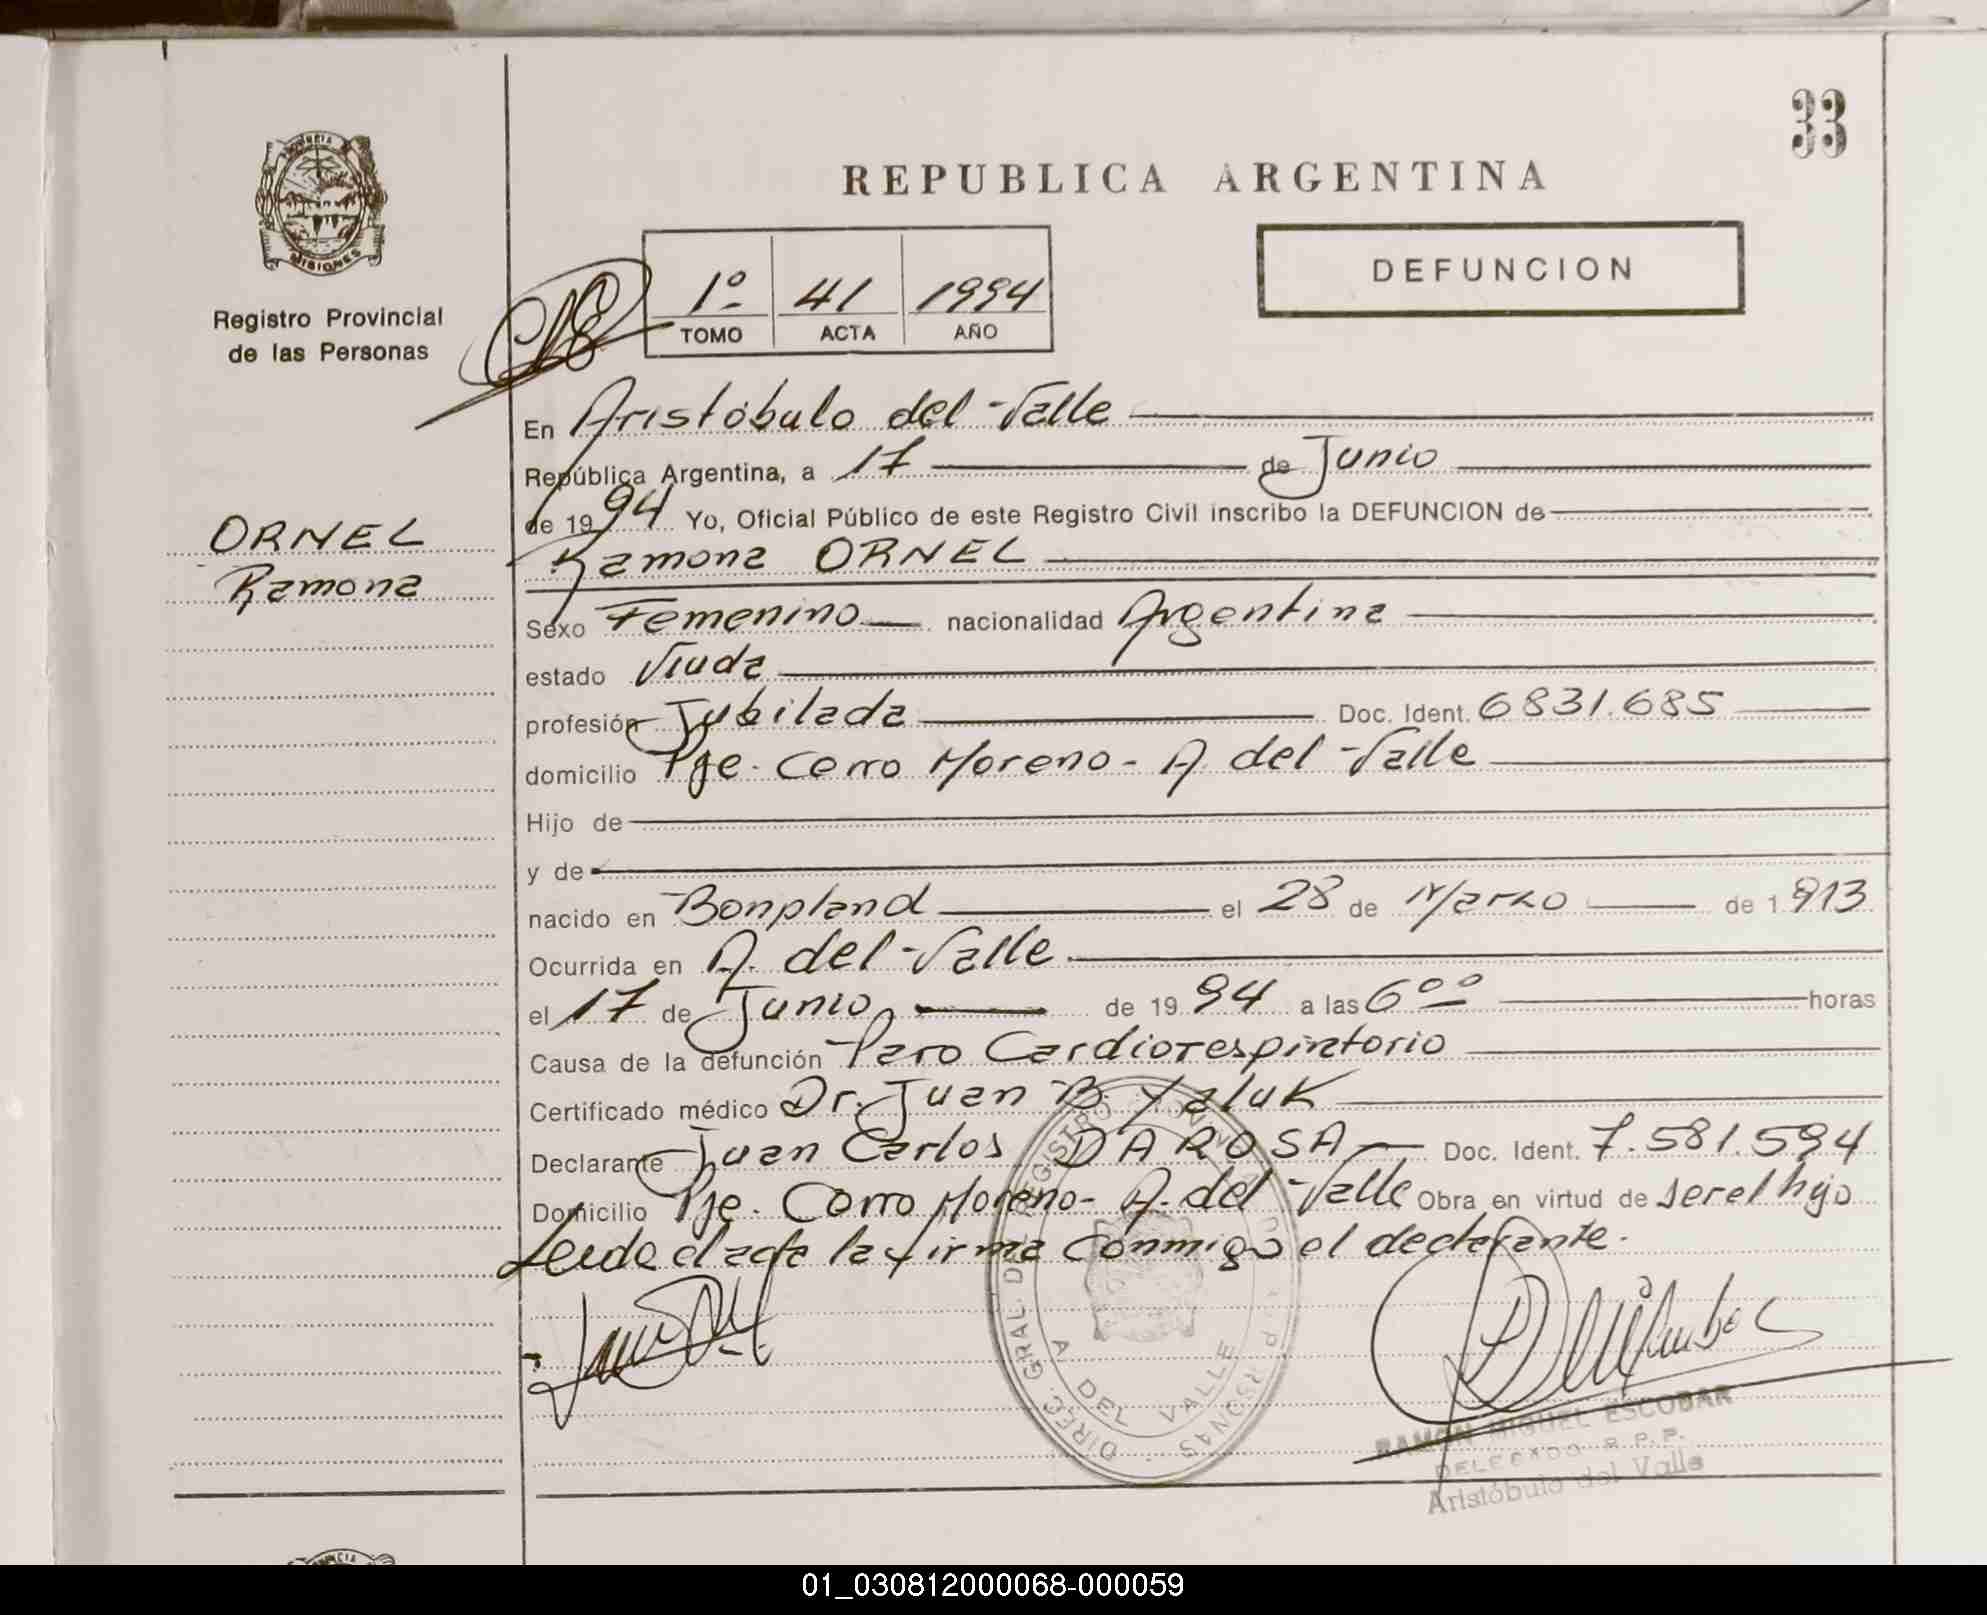 33
REPUBLICA ARGENTINA
PROVINCIA
MISIONES
Registro Provincial
de las Personas
1º 41 1994
TOMO ACTA AÑO
DEFUNCION
ORNEL
Ramona
En Aristóbulo del Valle
República Argentina, a 17 de Junio
de 1994 Yo, Oficial Público de este Registro Civil inscribo la DEFUNCION de
Ramona ORNEL
Sexo Femenino nacionalidad Argentina
estado Viuda
profesión Jubilada Doc. Ident. 6831.685
domicilio Pje. Cerro Moreno - A. del Valle
Hijo de
y de
nacido en Bonpland el 28 de Marzo de 1913
Ocurrida en A. del Valle
el 17 de Junio de 1994 a las 6⁰⁰ horas
Causa de la defunción Paro Cardiorespiratorio
Certificado médico Dr. Juan B. Yaluk
Declarante Juan Carlos DAROSA Doc. Ident. 7.581.594
Domicilio Pje. Cerro Moreno - A. del Valle Obra en virtud de ser el hijo
Leida el acta la firma conmigo el declarante.
A DEL VALLE
RAMON MIGUEL ESCOBAR
DELEGADO R.P.P.
Aristóbulo del Valle
01_030812000068-000059